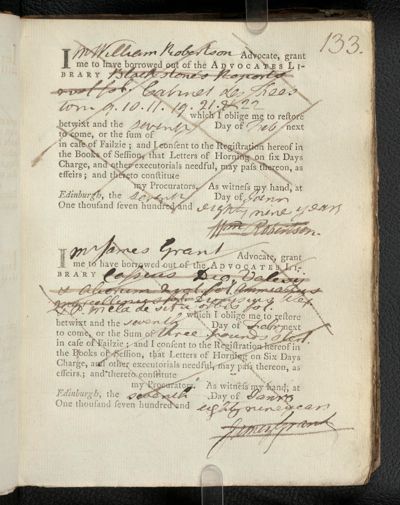 133.
I Mr William Robertson Advocate, grant
me to have borrowed out of the ADVOCATES LI-
BRARY Blackstone's Reports
Cabinet de Fees
tom 9. 10. 11. 19. 21. & 22
which I oblige me to restore
betwixt and the seventh Day of Feb next
to come, or the sum of
in case of Failzie; and I consent to the Registration hereof in
the Books of Session, that Letters of Horning on six Days
Charge, and other executorials needful, may pass thereon, as
effeirs; and thereto constitute
my Procurators. As witness my hand, at
Edinburgh, the seventh Day of Janry
One thousand seven hundred and eighty nine years
Wm Robertson.
I Mr James Grant Advocate, grant
me to have borrowed out of the ADVOCATES LI-
BRARY Cassius Dio
&
P. Mela de situ orbis
which I oblige me to restore
betwixt and the seventh Day of Febr next
to come, or the Sum of three pounds sterl.
in case of Failzie; and I consent to the Registration hereof in
the Books of Session, that Letters of Horning on Six Days
Charge, and other executorials needful, may pass thereon, as
effeirs.; and thereto constitute
my Procurators. As witness my hand, at
Edinburgh, the seventh Day of Janry
One thousand seven hundred and eighty nine years
James Grant